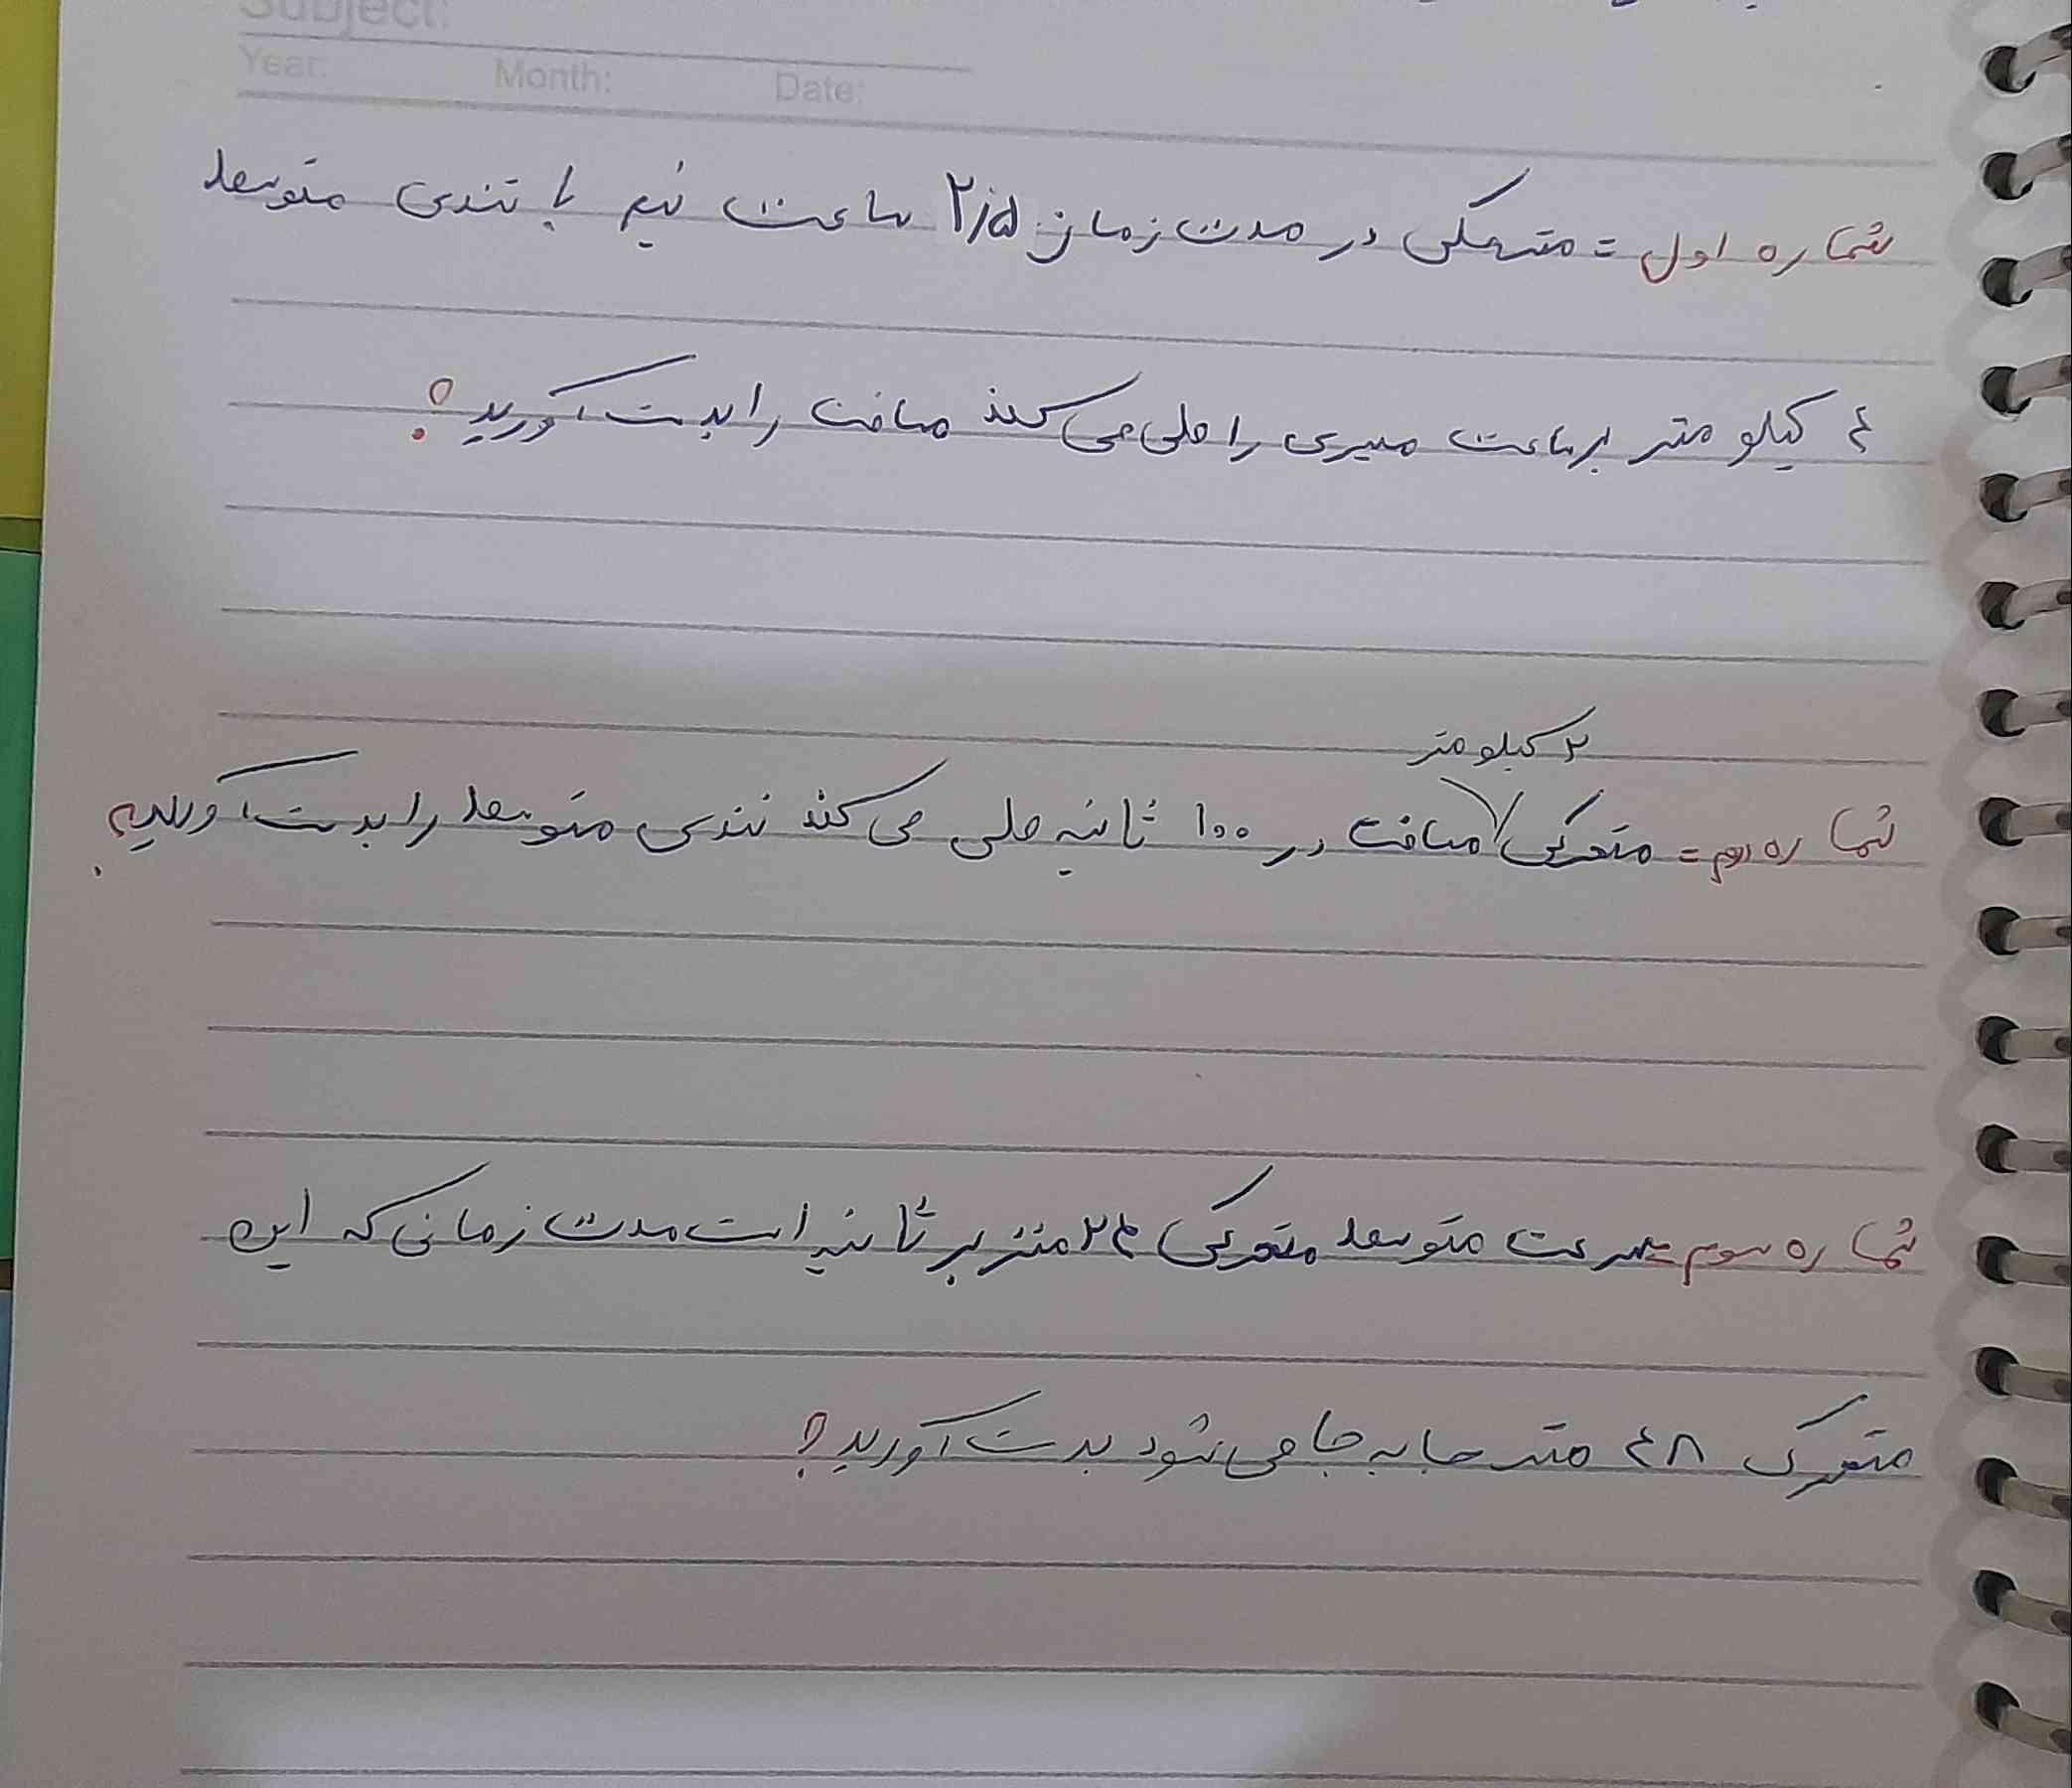 Subject:
Year: Month: Date:
شماره اول = متحرکی در مدت زمان ۲/۵ ساعت نیم با تندی متوسط
۴ کیلو متر بر ساعت مسیری را طی می کند مسافت را بدست آورید؟
۲ کیلومتر
شماره دوم = متحرکی مسافت در ۱۰۰ ثانیه طی می کند تندی متوسط را بدست آورید؟
شماره سوم = سرعت متوسط متحرکی ۲۴ متر بر ثانیه است مدت زمانی که این
متحرک ۴۸ متر جا به جا می شود بدست آورید؟